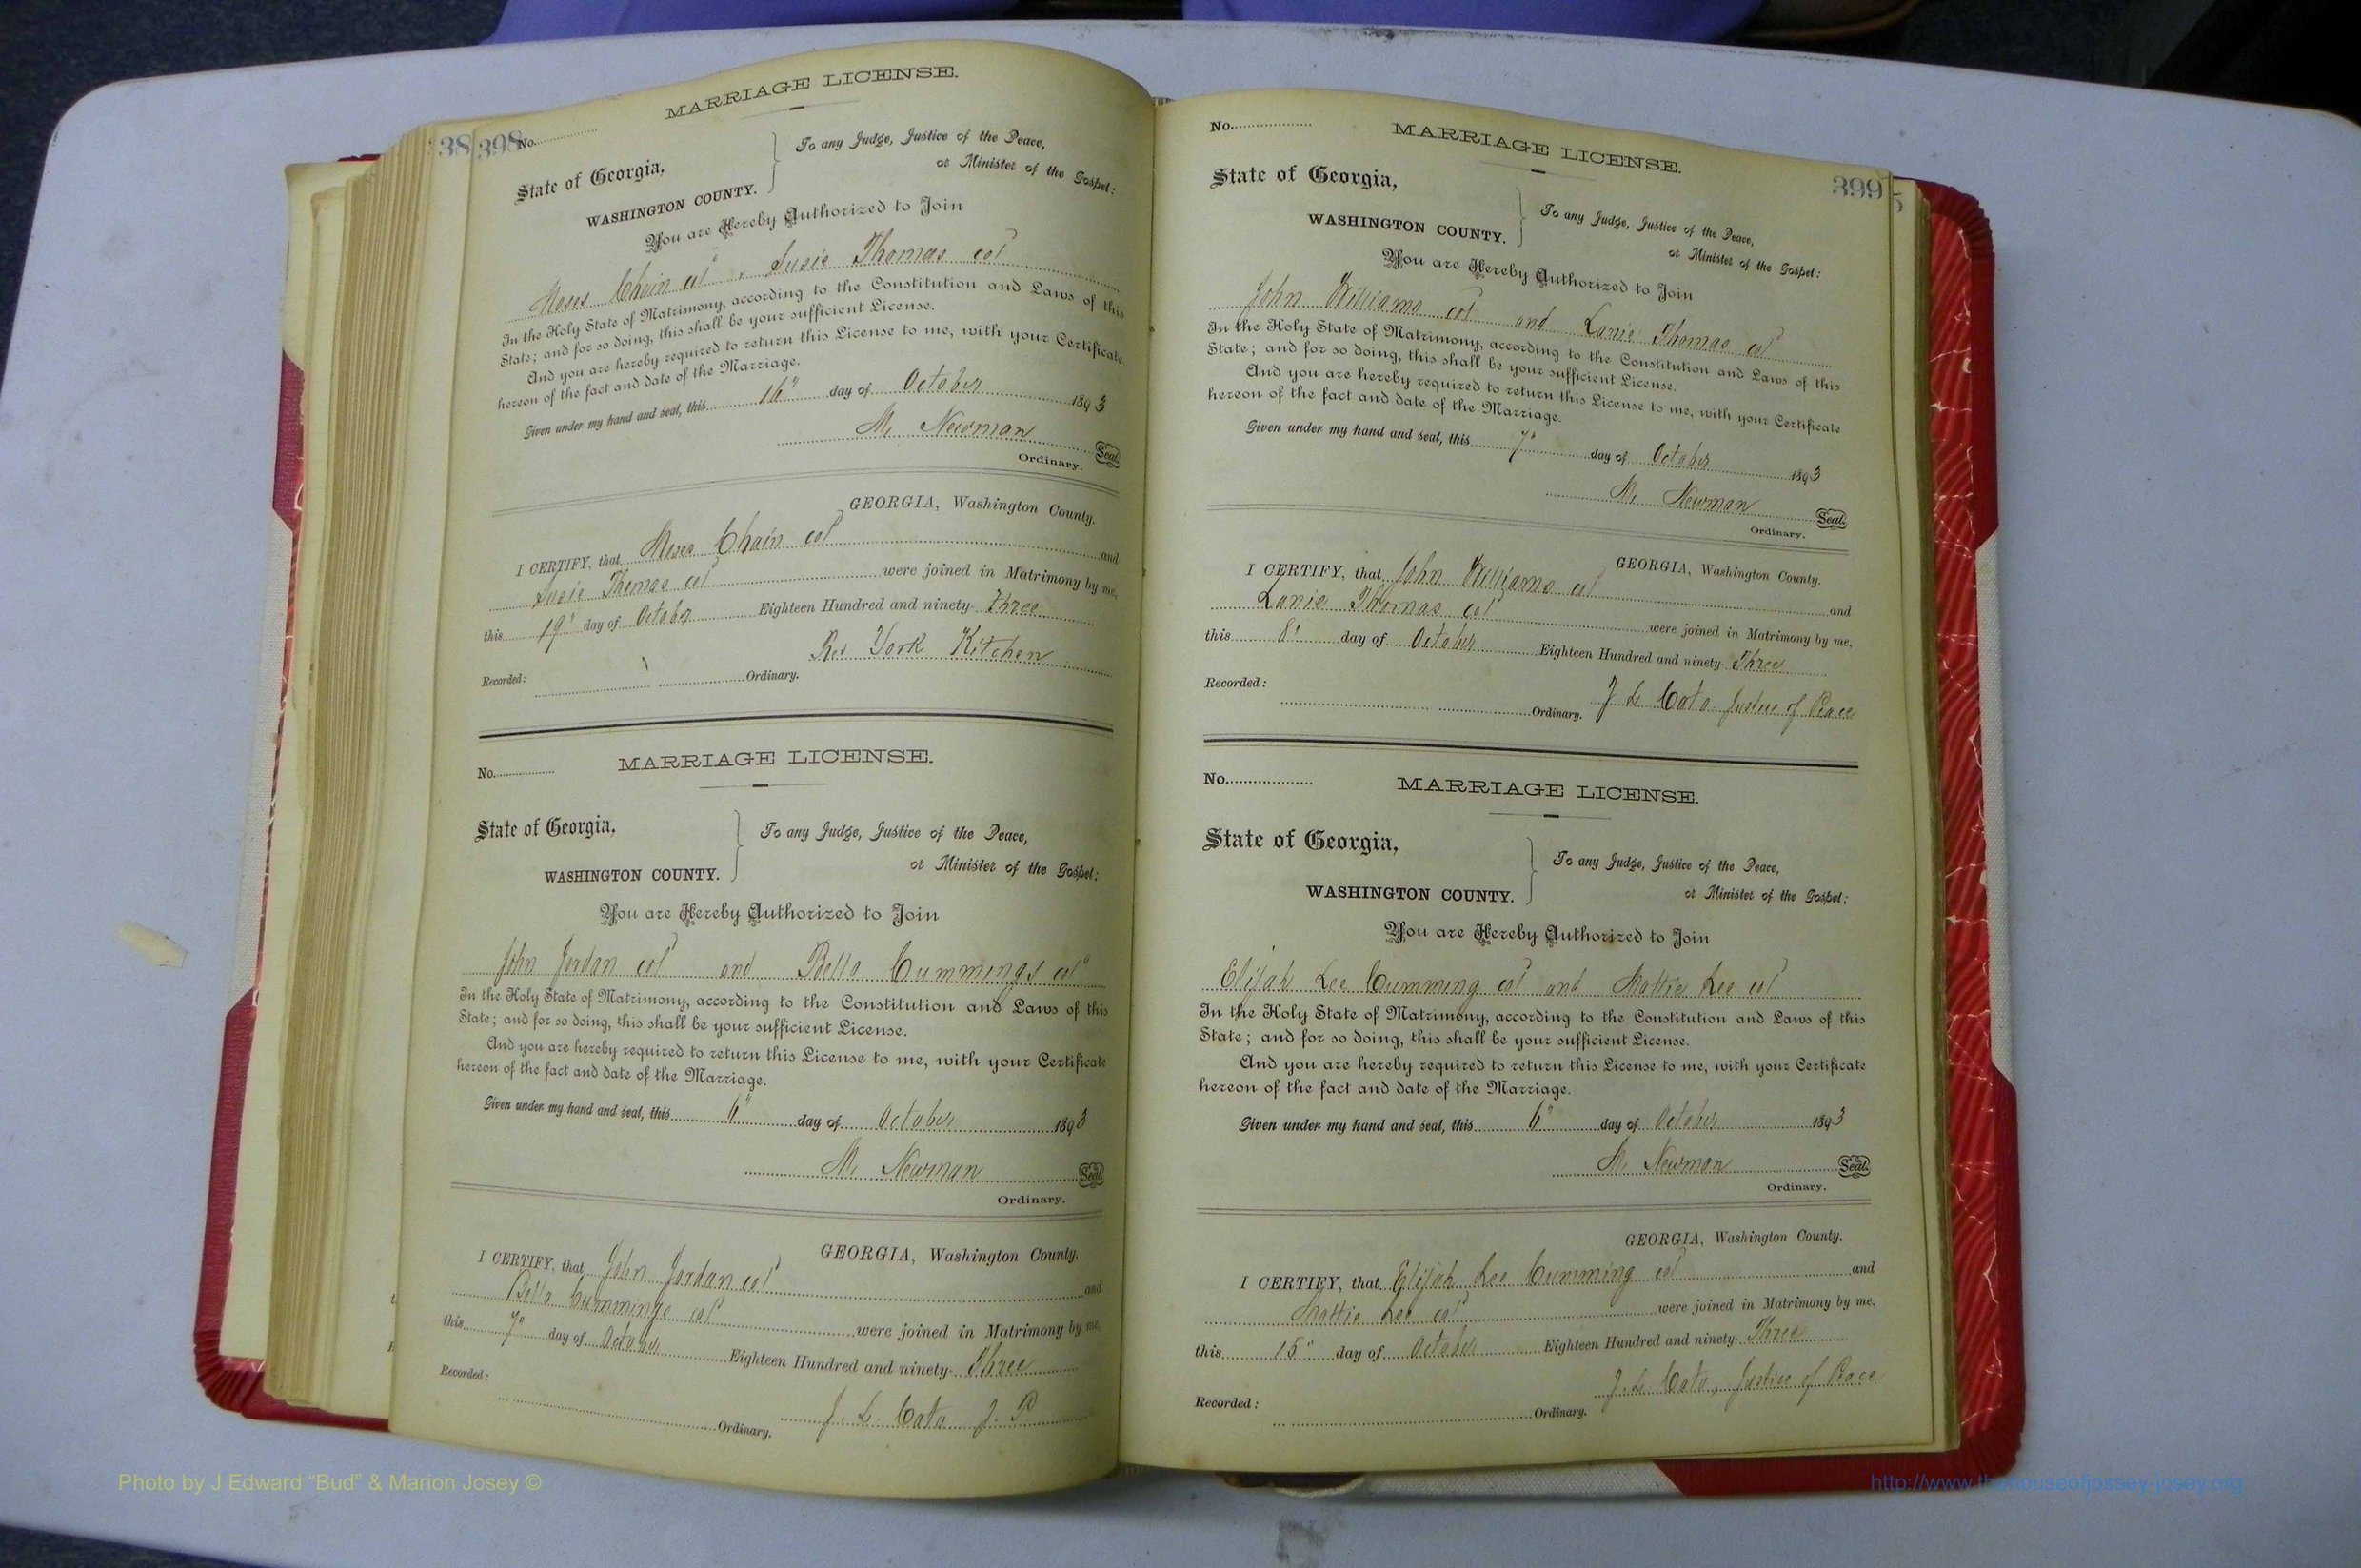 38 398
No.
MARRIAGE LICENSE.
State of Georgia,
WASHINGTON COUNTY.
To any Judge, Justice of the Peace,
or Minister of the Gospel:
You are Hereby Authorized to Join
Moses Chain col Susie Thomas col
In the Holy State of Matrimony, according to the Constitution and Laws of this
State; and for so doing, this shall be your sufficient License.
And you are hereby required to return this License to me, with your Certificate
hereon of the fact and date of the Marriage.
Given under my hand and seal, this 16" day of October 1893
M. Newman Seal.
Ordinary.
GEORGIA, Washington County.
I CERTIFY, that Moses Chain col and
Susie Thomas col were joined in Matrimony by me,
this 19" day of October Eighteen Hundred and ninety-Three
Rev York Kitchen
Recorded: Ordinary.
No.
MARRIAGE LICENSE.
State of Georgia,
WASHINGTON COUNTY.
To any Judge, Justice of the Peace,
or Minister of the Gospel:
You are Hereby Authorized to Join
John Jordan col and Bella Cummings col
In the Holy State of Matrimony, according to the Constitution and Laws of this
State; and for so doing, this shall be your sufficient License.
And you are hereby required to return this License to me, with your Certificate
hereon of the fact and date of the Marriage.
Given under my hand and seal, this 6" day of October 1893
M. Newman Seal.
Ordinary.
GEORGIA, Washington County.
I CERTIFY, that John Jordan col and
Bella Cummings col were joined in Matrimony by me,
this 7" day of October Eighteen Hundred and ninety-Three
J. L. Cato J. P
Recorded: Ordinary.
No.
MARRIAGE LICENSE.
399
State of Georgia,
WASHINGTON COUNTY.
To any Judge, Justice of the Peace,
or Minister of the Gospel:
You are Hereby Authorized to Join
John Williams col and Lanie Thomas col
In the Holy State of Matrimony, according to the Constitution and Laws of this
State; and for so doing, this shall be your sufficient License.
And you are hereby required to return this License to me, with your Certificate
hereon of the fact and date of the Marriage.
Given under my hand and seal, this 7" day of October 1893
M. Newman Seal.
Ordinary.
GEORGIA, Washington County.
I CERTIFY, that John Williams col and
Lanie Thomas col were joined in Matrimony by me,
this 8" day of October Eighteen Hundred and ninety-Three
J L Cato Justice of Peace
Recorded: Ordinary.
No.
MARRIAGE LICENSE.
State of Georgia,
WASHINGTON COUNTY.
To any Judge, Justice of the Peace,
or Minister of the Gospel:
You are Hereby Authorized to Join
Elijah Lee Cumming col and Mattie Lee col
In the Holy State of Matrimony, according to the Constitution and Laws of this
State; and for so doing, this shall be your sufficient License.
And you are hereby required to return this License to me, with your Certificate
hereon of the fact and date of the Marriage.
Given under my hand and seal, this 6" day of October 1893
M. Newman Seal.
Ordinary.
GEORGIA, Washington County.
I CERTIFY, that Elijah Lee Cumming col and
Mattie Lee col were joined in Matrimony by me,
this 15" day of October Eighteen Hundred and ninety-Three
J. L. Cato, Justice of Peace
Recorded: Ordinary.
Photo by J Edward “Bud” & Marion Josey ©
http://www.thehouseofjossey-josey.org